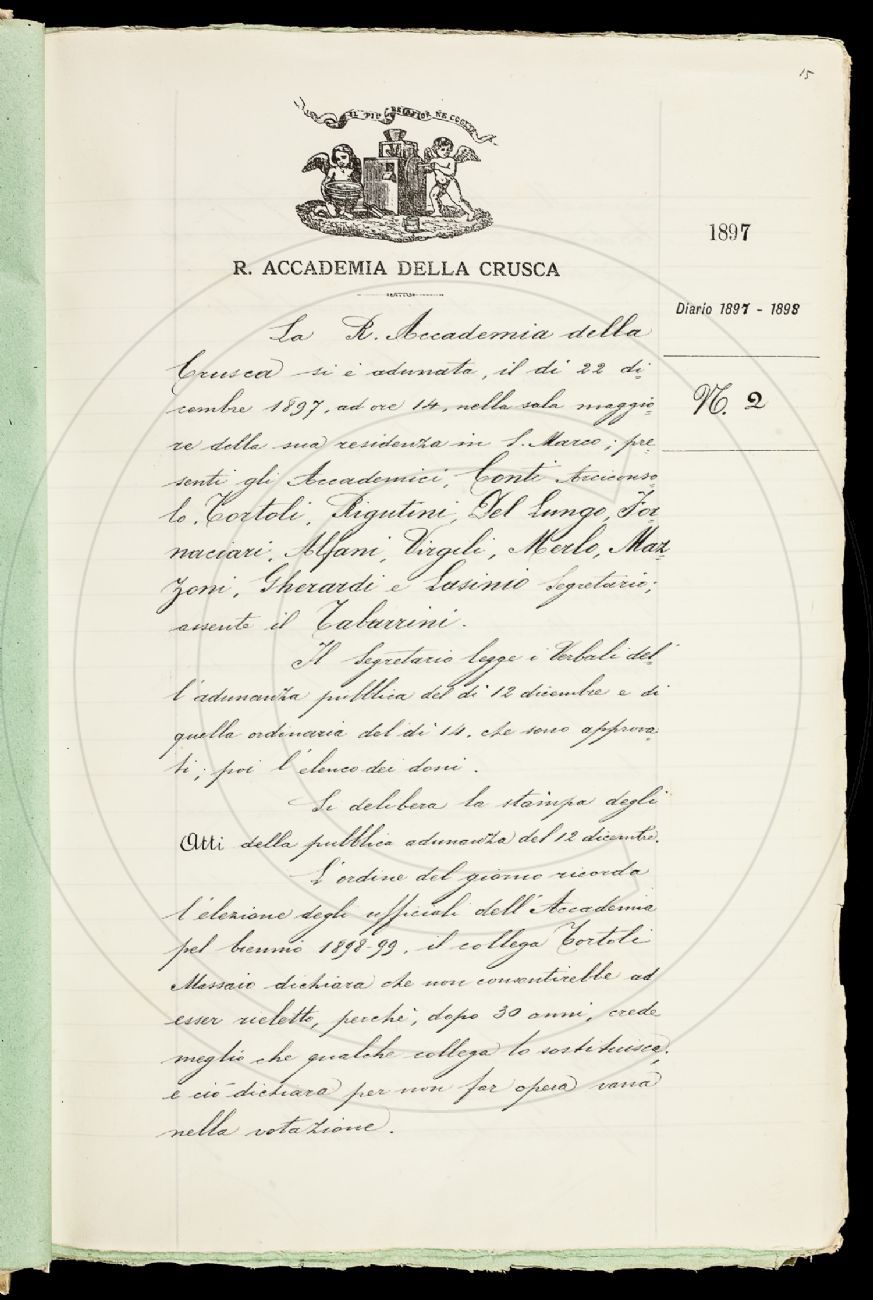 15
IL PIÙ BEL FIOR NE COGLIE
R. ACCADEMIA DELLA CRUSCA
1897
Diario 1897 - 1898
N. 2
La R. Accademia della
Crusca si è adunata, il dì 22 di=
cembre 1897, ad ore 14, nella sala maggio=
re della sua residenza in S. Marco; pre=
senti gli Accademici, Conti Arciconso=
lo, Tortoli, Rigutini, Del Lungo, For=
naciari, Alfani, Virgili, Merlo, Maz=
zoni, Gherardi e Lasinio Segretario;
assente il Tabarrini.
Il Segretario legge i Verbali del=
l'adunanza pubblica del dì 12 dicembre e di
quella ordinaria del dì 14, che sono approva=
ti; poi l'elenco dei doni.
Si delibera la stampa degli
Atti della pubblica adunanza del 12 dicembre.
L'ordine del giorno ricorda
l'elezione degli ufficiali dell'Accademia
pel biennio 1898-99, il collega Tortoli
Massaio dichiara che non consentirebbe ad
esser rieletto, perchè, dopo 30 anni, crede
meglio che qualche collega lo sostituisca,
e ciò dichiara per non far opera vana
nella votazione.